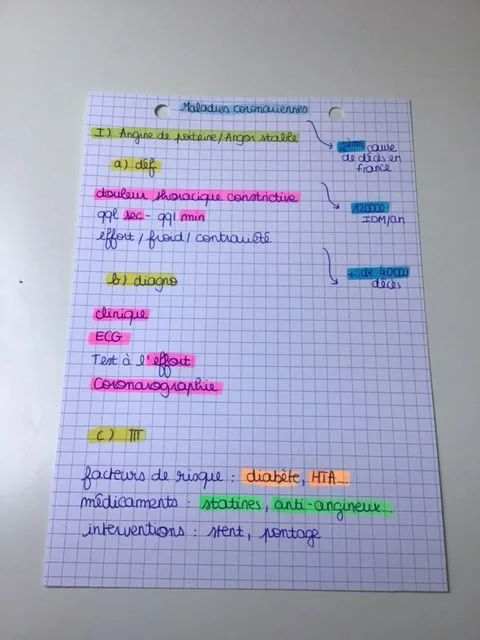 Maladies coronariennes
I) Angine de poitrine/Angor stable
2ème cause
de décès en
france
a) déf
douleur thoracique constrictive
120000
IDM/an
qql sec - qql min
effort / froid / contrariété
+ de 40000
décès
b) diagno
clinique
ECG
Test à l'effort
Coronarographie
c) TTT
facteurs de risque : diabète, HTA...
médicaments : statines, anti-angineux...
interventions : stent, pontage